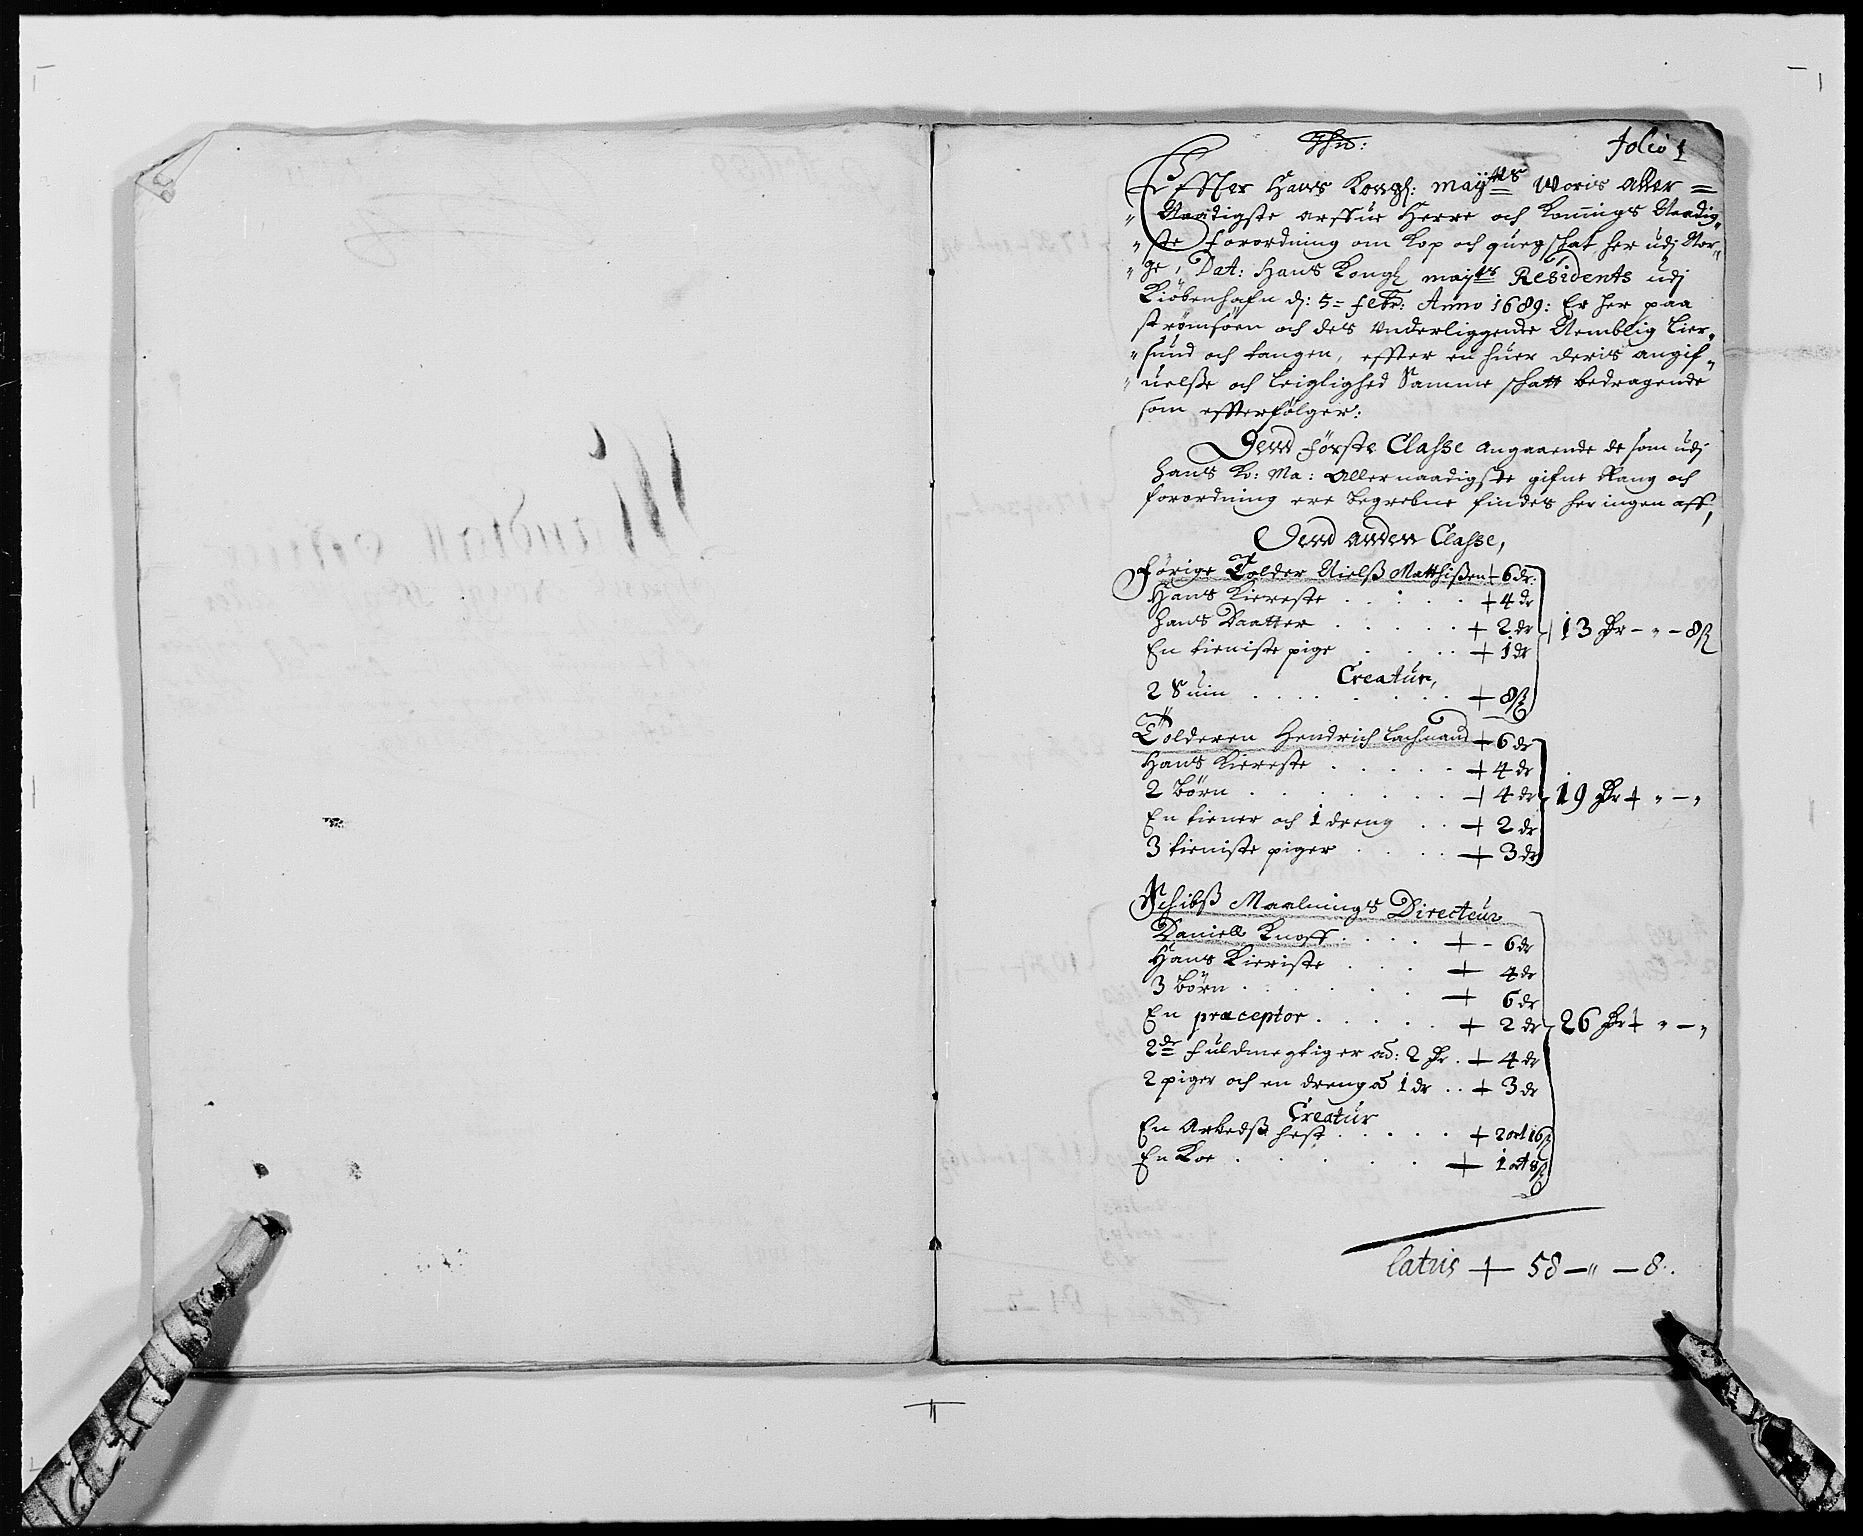 Jhs: Folio 1
Effter Hans Kongl: mayts Woris aller=
Naadigste arffue Herre och Konnings Naadig„
„ste forordning om Kop och quegschat her udj Nor„
„ge, Dat: Hans Kongl mayts Residents udj
Kiöbenhafn d: 5= febr: Anno 1689: Er her paa
strömsöen och des Underliggende Nemblig Lier„
„sund och tangen, effter en huer deris angif„
„uelße och Leiglighed Samme schatt bedragende
som effterfölger:
Dend förste Classe angaaende de som udj
Hans Ko: Ma: Allernaadigste gifne Rang och
forordning ere begrebne findes her ingen aff,
Dend anden Classe,
Förige Tolder Nielß Matthißen + 6 dr
Hans Kiereste + 4 dr
Hans Daatter + 2 dr
En tieniste pige + 1 dr
13 Dr - „ - 8 ß
Creatur,
2 Suin + 8 ß
Tolderen Hendrich Lachmand + 6 dr
Hans Kiereste + 4 dr
2 Börn + 4 dr
19 Dr + „ - „
En tiener och 1 dreng + 2 dr
3 tieniste piger + 3 dr
Schibß Maalnings Directeur
Daniell Knoff + - 6 dr
Hans Kieriste + 4 dr
3 Börn + 6 dr
En præceptor + 2 dr
26 Dr + „ - „
2de fuldmegtiger ad: 2 Dr + 4 dr
2 piger och en dreng ad 1 dr + 3 dr
Creatur
En Arbedß hest + 2 ort 16 ß
En Koe + 1 ort 8 ß
Latus + 58 - „ - 8